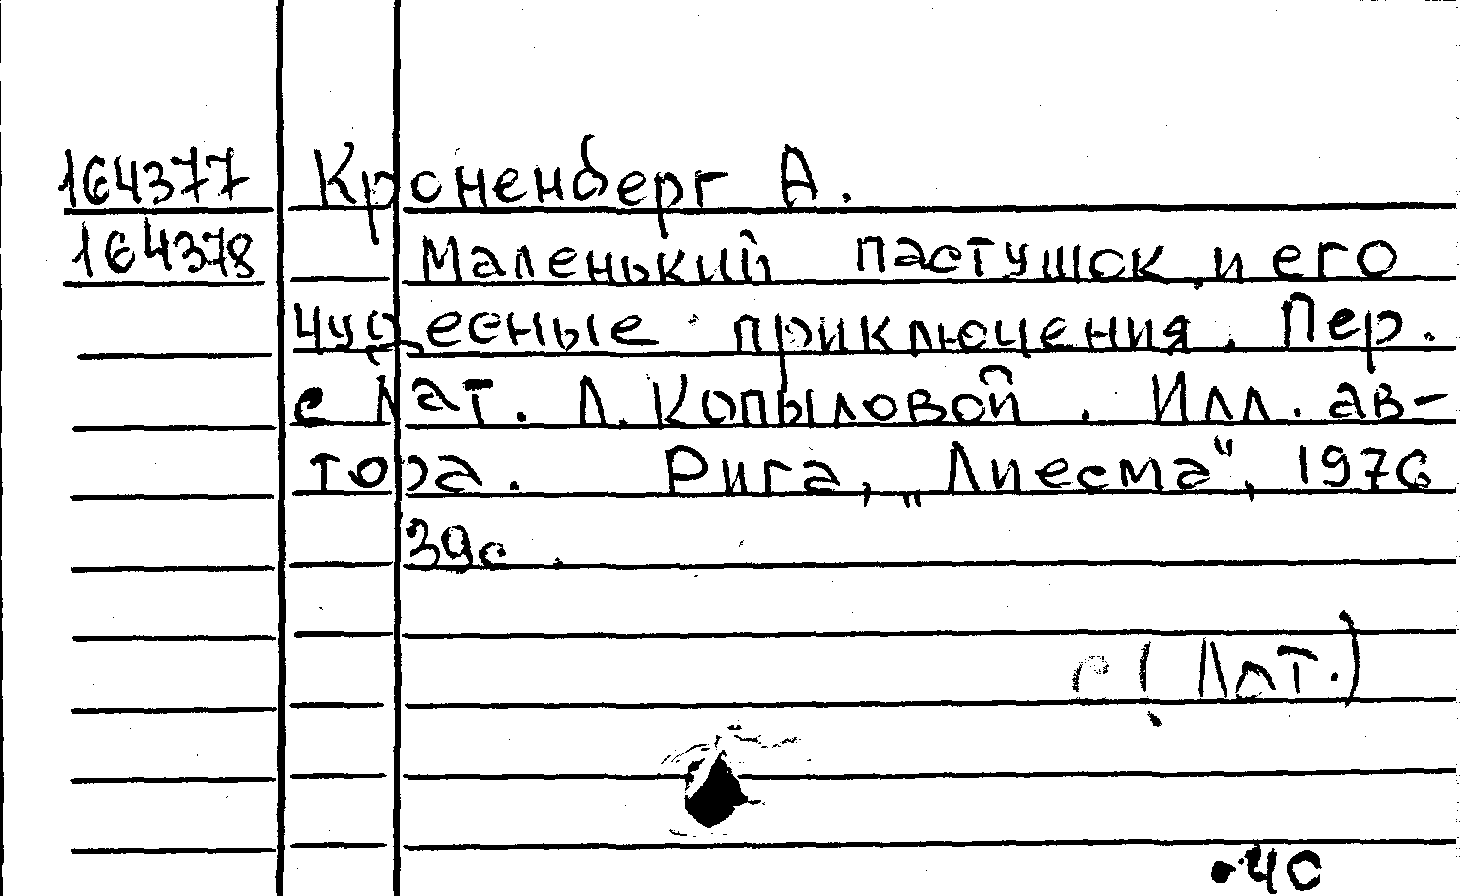 164377 Кроненберг А.
164378 Маленький пастушок и его
чудесные приключения. Пер.
с лат. Л. Копыловой. Илл. ав-
тора. Рига, „Лиесма", 1976
39с.
с (Лат.)
40